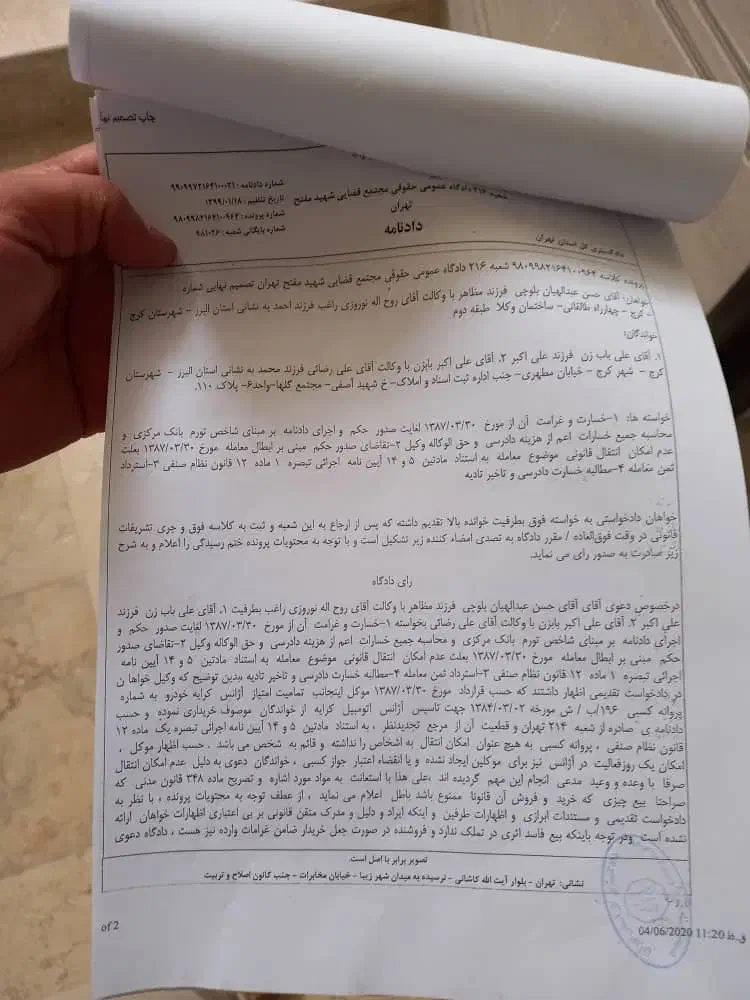 چاپ تصمیم نها
شماره دادنامه: ۹۹۰۹۹۷۲۱۶۴۱۰۰۰۲۱
تاریخ تنظیم: ۱۳۹۹/۰۱/۱۸
شماره پرونده: ۹۸۰۹۹۸۲۱۶۴۱۰۰۹۶۲
شماره بایگانی شعبه: ۹۸۱۰۲۶
شعبه ۲۱۶ دادگاه عمومی حقوقی مجتمع قضایی شهید مفتح
تهران
دادنامه
دادگستری کل استان تهران
پرونده کلاسه ۹۸۰۹۹۸۲۱۶۴۱۰۰۹۶۲ شعبه ۲۱۶ دادگاه عمومی حقوقی مجتمع قضایی شهید مفتح تهران تصمیم نهایی شماره
خواهان: آقای حسن عبدالهیان بلوچی فرزند مظاهر با وکالت آقای روح اله نوروزی راغب فرزند احمد به نشانی استان البرز - شهرستان کرج
- کرج - چهارراه طالقانی- ساختمان وکلا طبقه دوم
خواندگان:
۱. آقای علی باب زن فرزند علی اکبر ۲. آقای علی اکبر بابزن با وکالت آقای علی رضائی فرزند محمد به نشانی استان البرز - شهرستان
کرج - شهر کرج - خیابان مطهری- جنب اداره ثبت اسناد و املاک- خ شهید آصفی- مجتمع گلها-واحد۶- پلاک ۱۱۰.
خواسته ها: ۱-خسارت و غرامت آن از مورخ ۱۳۸۷/۰۳/۳۰ لغایت صدور حکم و اجرای دادنامه بر مبنای شاخص تورم بانک مرکزی و
محاسبه جمیع خسارات اعم از هزینه دادرسی و حق الوکاله وکیل ۲-تقاضای صدور حکم مبنی بر ابطال معامله مورخ ۱۳۸۷/۰۳/۳۰ بعلت
عدم امکان انتقال قانونی موضوع معامله به استناد مادتین ۵ و ۱۴ آیین نامه اجرائی تبصره ۱ ماده ۱۲ قانون نظام صنفی ۳-استرداد
ثمن معامله ۴-مطالبه خسارت دادرسی و تاخیر تادیه
خواهان دادخواستی به خواسته فوق بطرفیت خوانده بالا تقدیم داشته که پس از ارجاع به این شعبه و ثبت به کلاسه فوق و جری تشریفات
قانونی در وقت فوق‌العاده / مقرر دادگاه به تصدی امضاء کننده زیر تشکیل است و با توجه به محتویات پرونده ختم رسیدگی را اعلام و به شرح
زیر مبادرت به صدور رای می نماید.
رای دادگاه
درخصوص دعوی آقای آقای حسن عبدالهیان بلوچی فرزند مظاهر با وکالت آقای روح اله نوروزی راغب بطرفیت ۱. آقای علی باب زن فرزند
علی اکبر ۲. آقای علی اکبر بابزن با وکالت آقای علی رضائی بخواسته ۱-خسارت و غرامت آن از مورخ ۱۳۸۷/۰۳/۳۰ لغایت صدور حکم و
اجرای دادنامه بر مبنای شاخص تورم بانک مرکزی و محاسبه جمیع خسارات اعم از هزینه دادرسی و حق الوکاله وکیل ۲-تقاضای صدور
حکم مبنی بر ابطال معامله مورخ ۱۳۸۷/۰۳/۳۰ بعلت عدم امکان انتقال قانونی موضوع معامله به استناد مادتین ۵ و ۱۴ آیین نامه
اجرائی تبصره ۱ ماده ۱۲ قانون نظام صنفی ۳-استرداد ثمن معامله ۴-مطالبه خسارت دادرسی و تاخیر تادیه بدین توضیح که وکیل خواها ن
در دادخواست تقدیمی اظهار داشتند که حسب قرارداد مورخ ۱۳۸۷/۰۳/۳۰ موکل اینجانب تمامیت امتیاز آژانس کرایه خودرو به شماره
پروانه کسبی ۱۹۶/ب / ش مورخه ۱۳۸۴/۰۳/۰۲ جهت تاسیس آژانس اتومبیل کرایه از خواندگان موصوف خریداری نموده و حسب
دادنامه ی صادره از شعبه ۲۱۴ تهران و قطعیت آن از مرجع تجدیدنظر ، به استناد مادتین ۵ و ۱۴ آیین نامه اجرائی تبصره یک ماده ۱۲
قانون نظام صنفی ، پروانه کسبی به هیچ عنوان امکان انتقال به اشخاص را نداشته و قائم به شخص می باشد . حسب اظهار موکل ،
امکان یک روزفعالیت در آژانس نیز برای موکلین ایجاد نشده و با انقضاء اعتبار جواز کسبی ، خواندگان دعوی به دلیل عدم امکان انتقال
صرفا با وعده و وعید مدعی انجام این مهم گردیده اند ،علی هذا با استعانت به مواد مورد اشاره و تصریح ماده ۳۴۸ قانون مدنی که
صراحتا بیع چیزی که خرید و فروش آن قانونا ممنوع باشد باطل اعلام می نماید ، از عطف توجه به محتویات پرونده ، با نظر به
دادخواست تقدیمی و مستندات ابرازی و اظهارات طرفین و اینکه ایراد و دلیل و مدرک متقن قانونی بر بی اعتباری اظهارات خواهان ارائه
نشده است ودر توجه باینکه بیع فاسد اثری در تملک ندارد و فروشنده در صورت جعل خریدار ضامن غرامات وارده نیز هست ، دادگاه دعوی
تصویر برابر با اصل است.
نشانی: تهران - بلوار آیت الله کاشانی - نرسیده به میدان شهر زیبا - خیابان مخابرات - جنب کانون اصلاح و تربیت
of 2
04/06/2020 11:20 ق.ظ